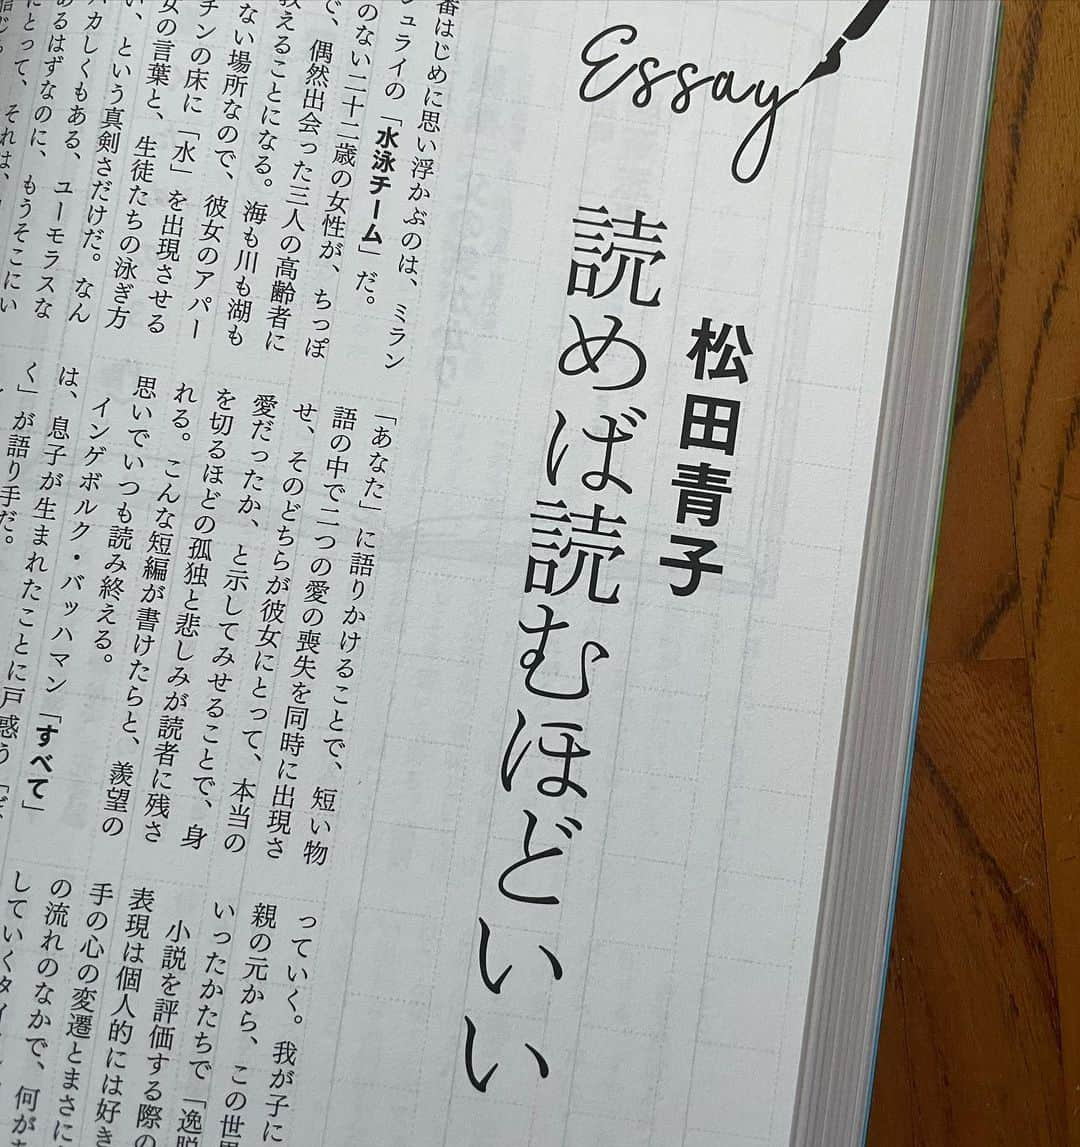 Essay
松田青子
読めば読むほどいい
番はじめに思い浮かぶのは、ミラン
ュライの「水泳チーム」だ。
のない二十二歳の女性が、ちっぽ
で、偶然出会った三人の高齢者に
教えることになる。海も川も湖も
ない場所なので、彼女のアパー
チンの床に「水」を出現させる
女の言葉と、生徒たちの泳ぎ方
い、という真剣さだけだ。なん
カしくもある、ユーモラスな
あるはずなのに、もうそこにい
にとって、それは、
「あなた」に語りかけることで、短い物
語の中で二つの愛の喪失を同時に出現さ
せ、そのどちらが彼女にとって、本当の
愛だったか、と示してみせることで、身
を切るほどの孤独と悲しみが読者に残さ
れる。こんな短編が書けたらと、羨望の
思いでいつも読み終える。
インゲボルク・バッハマン「すべて」
は、息子が生まれたことに戸惑う「ぼ
く」が語り手だ。
っていく。我が子に
親の元から、この世界
いったかたちで「逸脱
小説を評価する際の
表現は個人的には好き
手の心の変遷とまさに
の流れのなかで、何があ
していくタイ